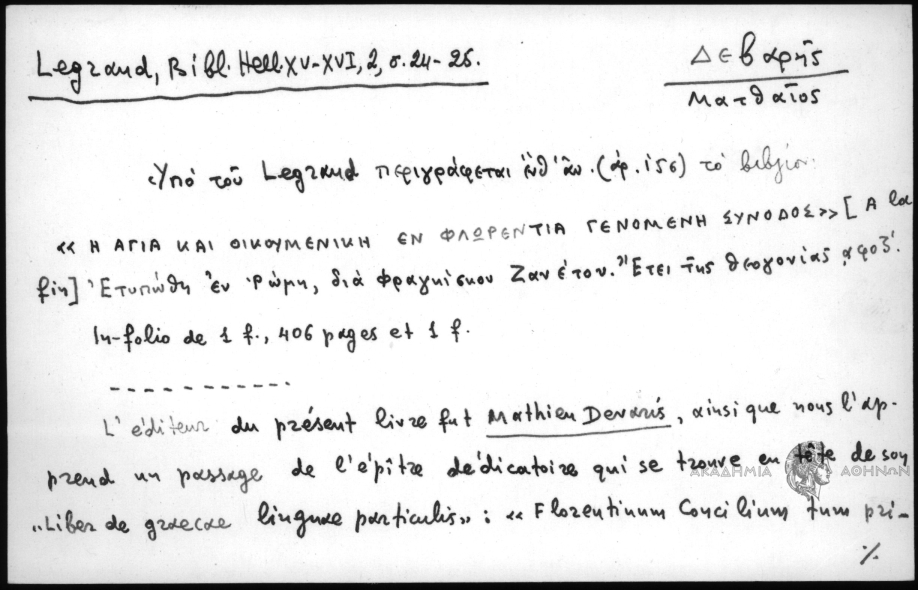 Legrand, Bibl. Hell. XV-XVI, 2, σ. 24-25.
Δεβαρῆς
Ματθαῖος
Ὑπό τοῦ Legrand περιγράφεται ἐνθ' ἀν. (ἀρ. 156) τό βιβλίον:
«Η ΑΓΙΑ ΚΑΙ ΟΙΚΟΥΜΕΝΙΚΗ ΕΝ ΦΛΩΡΕΝΤΙΑ ΓΕΝΟΜΕΝΗ ΣΥΝΟΔΟΣ» [A la
fin] Ἐτυπώθη ἐν Ῥώμῃ, διά Φραγκίσκου Ζανέτου. Ἔτει τῆς θεογονίας αφοζ'.
In-folio de 1 f., 406 pages et 1 f.
L'éditeur du présent livre fut Mathieu Devaris, ainsi que nous l'ap-
prend un passage de l'épître dédicatoire qui se trouve en tête de son
"Liber de graecae linguae particulis": «Florentinum Concilium tum pri-
ΑΚΑΔΗΜΙΑ ΑΘΗΝΩΝ
%